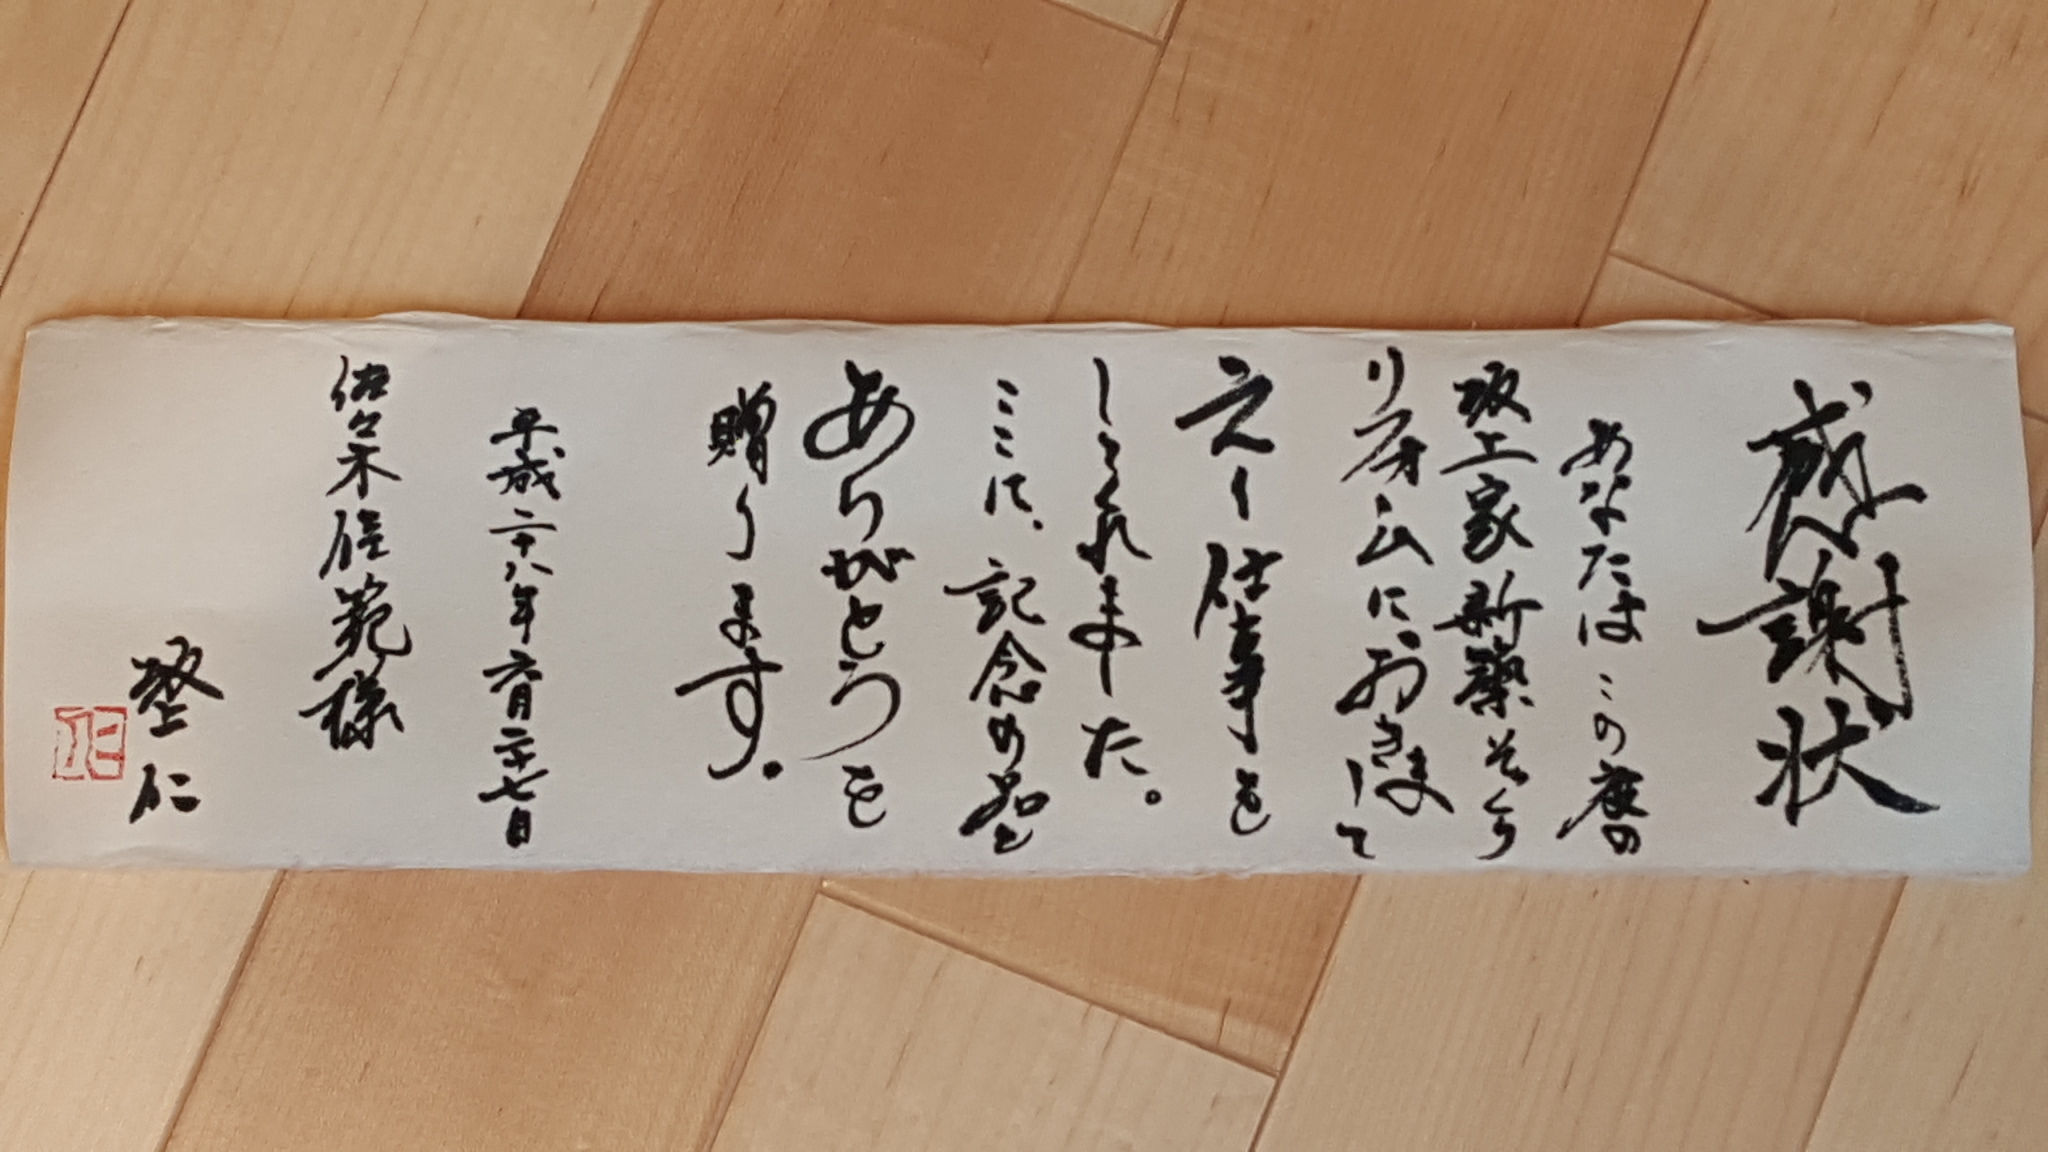 感謝状
あなたはこの度の
坂上家新築そくり
リフォームにおきまして
えー仕事を
してくれました。
ここに、記念の品と
ありがとうを
贈ります。
平成二十八年六月二十七日
佐々木信範様
坂上仁